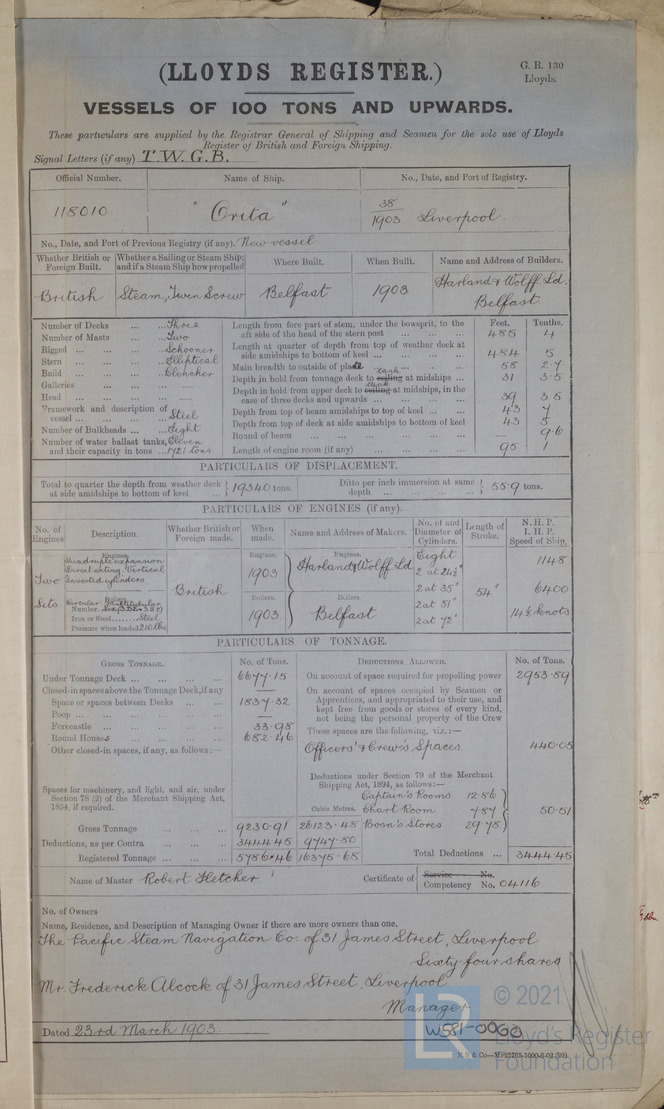 (LLOYDS REGISTER.)
G. R. 130
Lloyds.
VESSELS OF 100 TONS AND UPWARDS.
These particulars are supplied by the Registrar General of Shipping and Seamen for the sole use of Lloyds
Register of British and Foreign Shipping.
Signal Letters (if any) T.W.G.B.
Official Number. Name of Ship. No., Date, and Port of Registry.
118010 "Orita" 38/1903 Liverpool
No., Date, and Port of Previous Registry (if any). New vessel
Whether British or Foreign Built. Whether a Sailing or Steam Ship; and if a Steam Ship how propelled Where Built. When Built. Name and Address of Builders.
British Steam, Twin Screw Belfast 1903 Harland & Wolff Ld. Belfast
Feet. Tenths.
Number of Decks ... Three
Number of Masts ... Two
Rigged ... Schooner
Stern ... Elliptical
Build ... Clencher
Galleries ... —
Head ... —
Framework and description of vessel ... Steel
Number of Bulkheads ... Eight
Number of water ballast tanks, Eleven
and their capacity in tons ... 1721 tons
Length from fore part of stem, under the bowsprit, to the aft side of the head of the stern post 485 4
Length at quarter of depth from top of weather deck at side amidships to bottom of keel 484 5
Main breadth to outside of plate 58 2.7
Depth in hold from tonnage deck to ceiling tank at midships 31 3.5
Depth in hold from upper deck to ceiling tank at midships, in the case of three decks and upwards 39 35
Depth from top of beam amidships to top of keel 43 7
Depth from top of deck at side amidships to bottom of keel 43 5
Round of beam — 9.6
Length of engine room (if any) 95 1
PARTICULARS OF DISPLACEMENT.
Total to quarter the depth from weather deck at side amidships to bottom of keel 19340 tons.
Ditto per inch immersion at same depth 55.9 tons.
PARTICULARS OF ENGINES (if any).
No. of Engines Description. Whether British or Foreign made. When made. Name and Address of Makers. No. of and Diameter of Cylinders. Length of Stroke. N. H. P. I. H. P. Speed of Ship.
Two Sets
Engines.
Quadruple expansion
Direct acting Vertical
Inverted cylinders
Boilers.
Circular Multitubular
Iron or Steel ... Steel
Pressure when loaded 210 lbs.
British
Engines. 1903
Boilers. 1903
Engines. Harland & Wolff Ld
Boilers. Belfast
Eight
2 at 24½"
2 at 35"
2 at 51"
2 at 72"
54"
1148
6400
14½ knots
PARTICULARS OF TONNAGE.
GROSS TONNAGE. No. of Tons. DEDUCTIONS ALLOWED. No. of Tons.
Under Tonnage Deck 6677.15
Closed-in spaces above the Tonnage Deck, if any —
Space or spaces between Decks 1837.32
Poop —
Forecastle 33.98
Round Houses 682.46
Other closed-in spaces, if any, as follows:—
Spaces for machinery, and light, and air, under Section 78 (2) of the Merchant Shipping Act, 1894, if required.
On account of space required for propelling power 2953.89
On account of spaces occupied by Seamen or Apprentices, and appropriated to their use, and kept free from goods or stores of every kind, not being the personal property of the Crew
These spaces are the following, viz.:—
Officers' & Crew's Spaces 440.05
Deductions under Section 79 of the Merchant Shipping Act, 1894, as follows:—
Captain's Rooms 12.86
Cubic Metres. Chart Room 7.87
Boon's Stores 29.78
50.51
Gross Tonnage 9230.91 26123.48
Deductions, as per Contra 3444.45 9747.80
Registered Tonnage 5786.46 16375.68
Total Deductions ... 3444.45
Name of Master Robert Fletcher
Certificate of Service No.
Competency No. 04116
No. of Owners
Name, Residence, and Description of Managing Owner if there are more owners than one.
The Pacific Steam Navigation Co: of 31 James Street, Liverpool
Sixty four shares
Mr. Frederick Alcock of 31 James Street, Liverpool
Manager
Dated 23rd March 1903
W581-0060
© 2021
LR
Lloyd's Register
Foundation